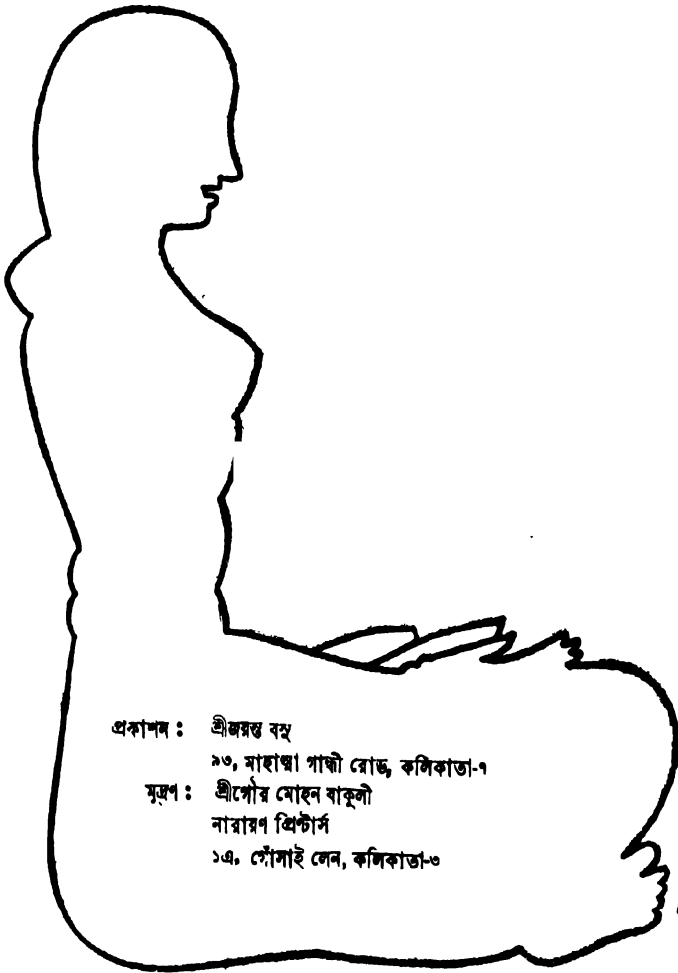 প্রকাশন : শ্রীজয়ন্ত বসু
৯৩, মাহাত্মা গান্ধী রোড, কলিকাতা-৭
মুদ্রণ : শ্রীগৌর মোহন বাকুলী
নারায়ণ প্রিন্টার্স
১এ, গোঁসাই লেন, কলিকাতা-৩